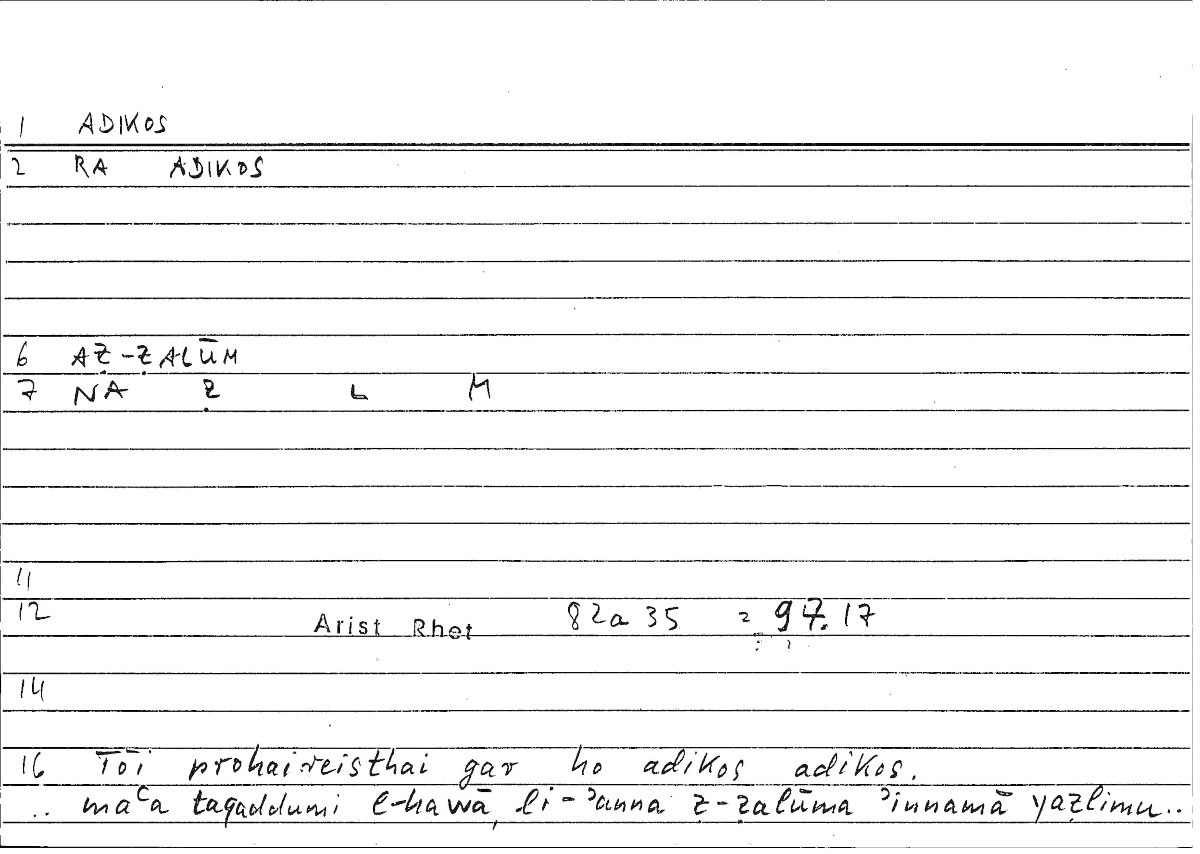 1 ADIKOS
2 RA ADIKOS
6 AẒ-ẒALŪM
7 NA Ẓ L M
11
12 Arist Rhet 82a 35 = 97.17
14
16 Tōi prohaireisthai gar ho adikos adikos.
.. maʿa taqaddumi l-hawā, li-ʾanna ẓ-ẓalūma ʾinnamā yaẓlimu..